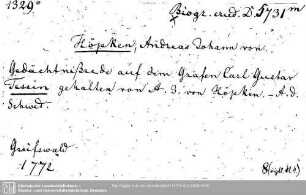 1329°
Biogr. erud. D. 5731ᵐ
Höpken, Andreas Johann von
Gedächtnißrede auf den Grafen Carl Gustav
Tessin gehalten von A. J. von Höpken. - A. d.
Schwed.
Greifswald
1772
Sächsische Landesbibliothek -
Staats- und Universitätsbibliothek Dresden